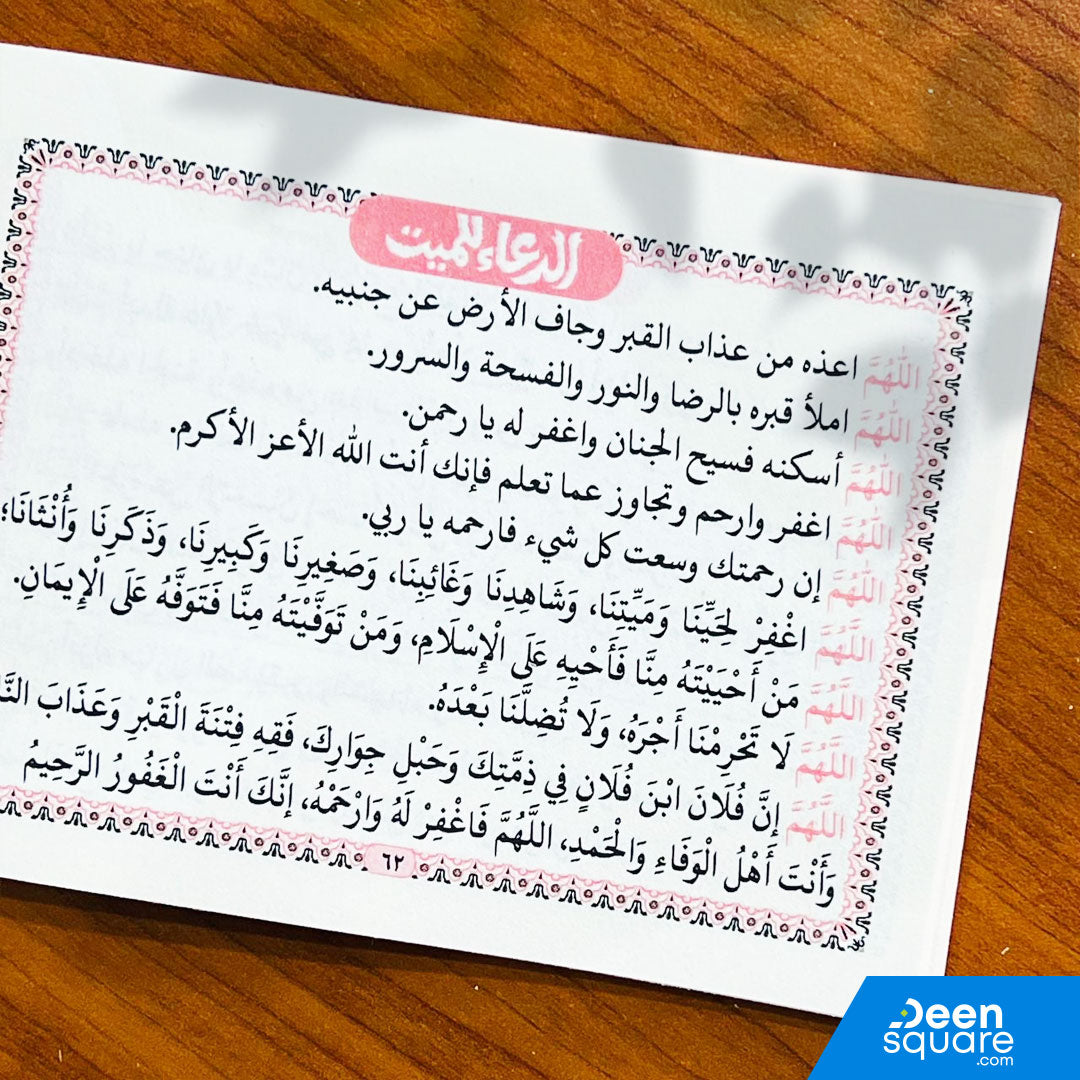 الدعاء للميت
اللّٰهُمَّ اعذه من عذاب القبر وجاف الأرض عن جنبيه.
اللّٰهُمَّ املأ قبره بالرضا والنور والفسحة والسرور.
اللّٰهُمَّ أسكنه فسيح الجنان واغفر له يا رحمن.
اللّٰهُمَّ اغفر وارحم وتجاوز عما تعلم فإنك أنت الله الأعز الأكرم.
اللّٰهُمَّ إن رحمتك وسعت كل شيء فارحمه يا ربي.
اللَّهُمَّ اغْفِرْ لِحَيِّنَا وَمَيِّتِنَا، وَشَاهِدِنَا وَغَائِبِنَا، وَصَغِيرِنَا وَكَبِيرِنَا، وَذَكَرِنَا وَأُنْثَانَا؛
اللَّهُمَّ مَنْ أَحْيَيْتَهُ مِنَّا فَأَحْيِهِ عَلَى الْإِسْلَامِ، وَمَنْ تَوَفَّيْتَهُ مِنَّا فَتَوَفَّهُ عَلَى الْإِيمَانِ.
اللَّهُمَّ لَا تَحْرِمْنَا أَجْرَهُ، وَلَا تُضِلَّنَا بَعْدَهُ.
اللَّهُمَّ إِنَّ فُلَانَ ابْنَ فُلَانٍ فِي ذِمَّتِكَ وَحَبْلِ جِوَارِكَ، فَقِهِ فِتْنَةَ الْقَبْرِ وَعَذَابَ
وَأَنْتَ أَهْلُ الْوَفَاءِ وَالْحَمْدِ، اللَّهُمَّ فَاغْفِرْ لَهُ وَارْحَمْهُ، إِنَّكَ أَنْتَ الْغَفُورُ الرَّحِيمُ
٦٢
Deen
square
.com